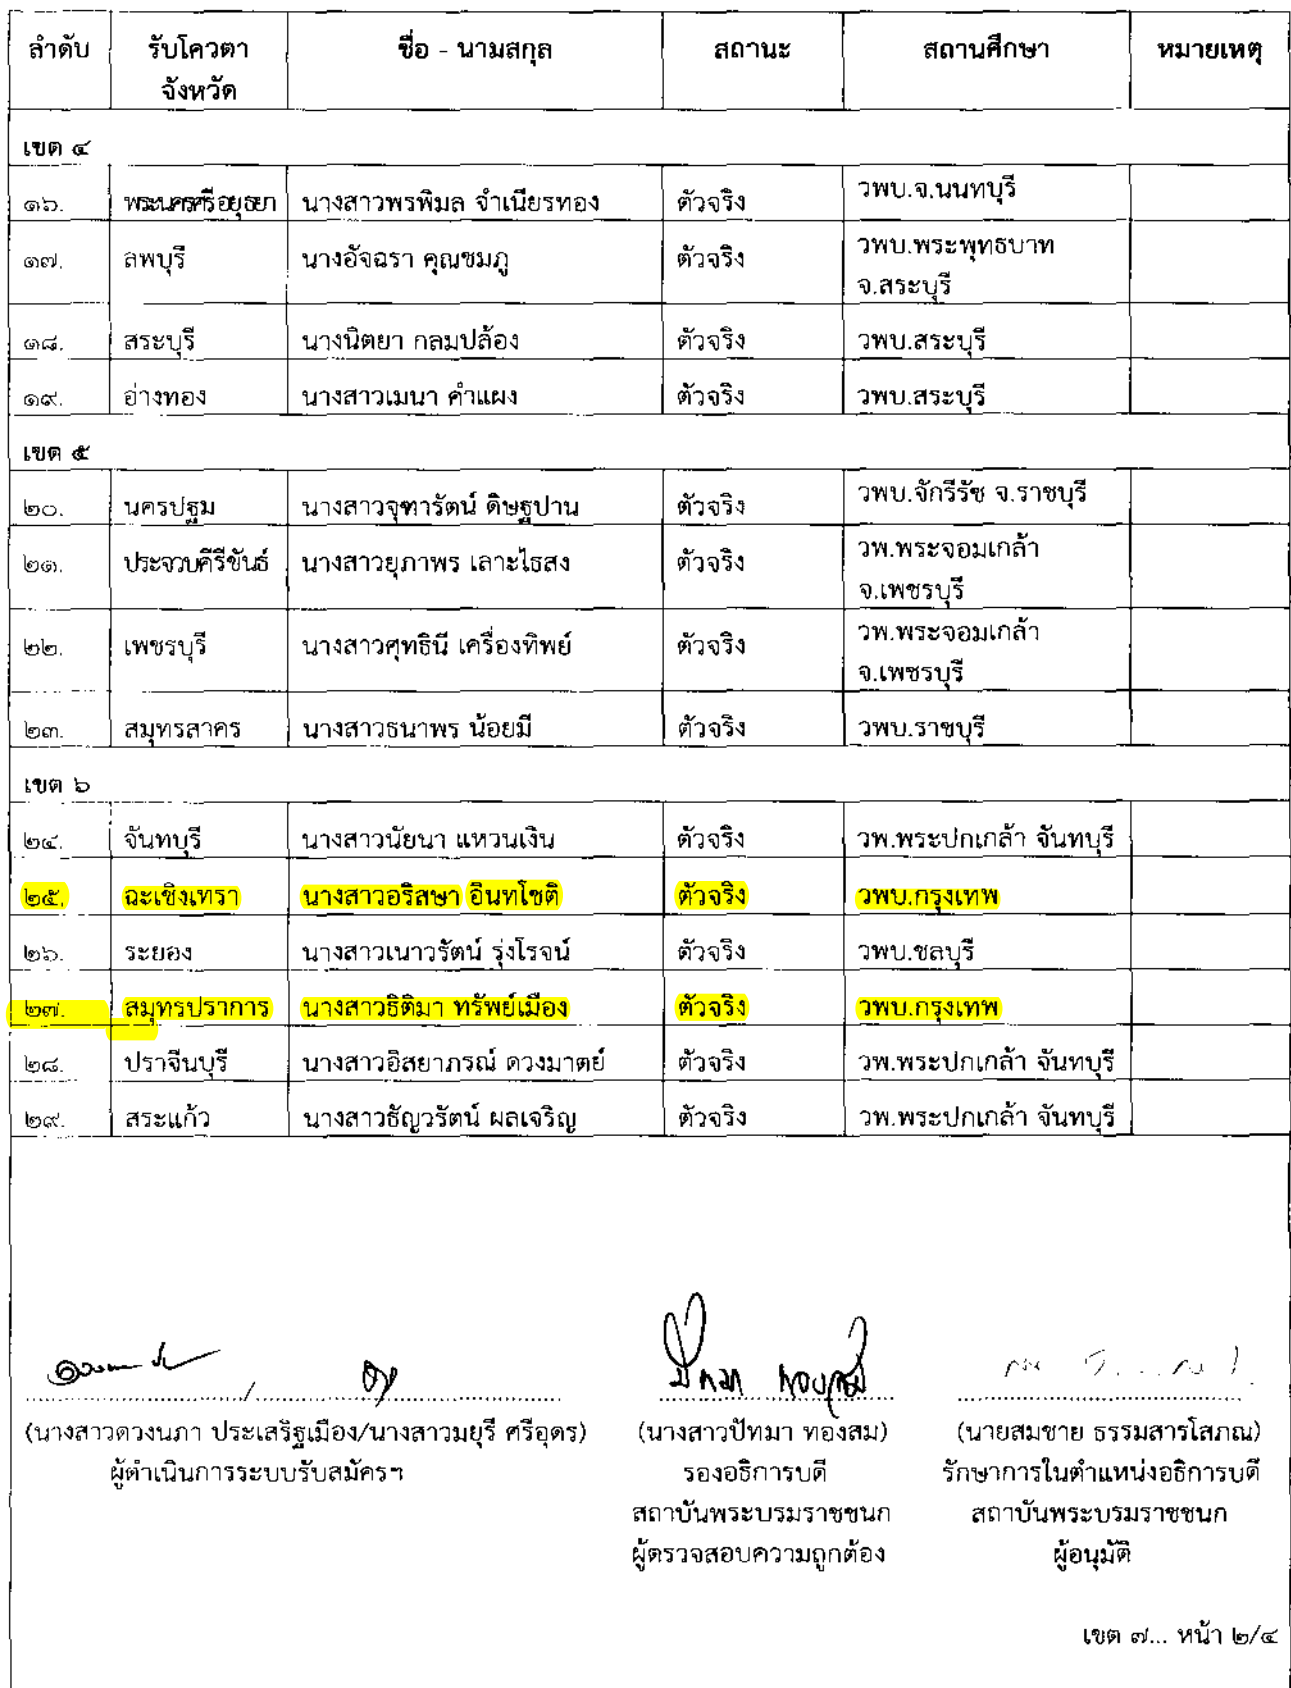 ลำดับ รับโควตา ชื่อ - นามสกุล สถานะ สถานศึกษา หมายเหตุ
จังหวัด
เขต ๔
๑๖. พระนครศรีอยุธยา นางสาวพรพิมล จำเนียรทอง ตัวจริง วพบ.จ.นนทบุรี
๑๗. ลพบุรี นางอัจฉรา คุณชมภู ตัวจริง วพบ.พระพุทธบาท
จ.สระบุรี
๑๘. สระบุรี นางนิตยา กลมปล้อง ตัวจริง วพบ.สระบุรี
๑๙. อ่างทอง นางสาวเมนา คำแผง ตัวจริง วพบ.สระบุรี
เขต ๕
๒๐. นครปฐม นางสาวจุฑารัตน์ ดิษฐปาน ตัวจริง วพบ.จักรีรัช จ.ราชบุรี
๒๑. ประจวบคีรีขันธ์ นางสาวยุภาพร เลาะไธสง ตัวจริง วพ.พระจอมเกล้า
จ.เพชรบุรี
๒๒. เพชรบุรี นางสาวศุทธินี เครื่องทิพย์ ตัวจริง วพ.พระจอมเกล้า
จ.เพชรบุรี
๒๓. สมุทรสาคร นางสาวธนาพร น้อยมี ตัวจริง วพบ.ราชบุรี
เขต ๖
๒๔. จันทบุรี นางสาวนัยนา แหวนเงิน ตัวจริง วพ.พระปกเกล้า จันทบุรี
๒๕. ฉะเชิงเทรา นางสาวอริสษา อินทโชติ ตัวจริง วพบ.กรุงเทพ
๒๖. ระยอง นางสาวเนาวรัตน์ รุ่งโรจน์ ตัวจริง วพบ.ชลบุรี
๒๗. สมุทรปราการ นางสาวธิติมา ทรัพย์เมือง ตัวจริง วพบ.กรุงเทพ
๒๘. ปราจีนบุรี นางสาวอิสยาภรณ์ ดวงมาตย์ ตัวจริง วพ.พระปกเกล้า จันทบุรี
๒๙. สระแก้ว นางสาวธัญวรัตน์ ผลเจริญ ตัวจริง วพ.พระปกเกล้า จันทบุรี
(นางสาวดวงนภา ประเสริฐเมือง/นางสาวมยุรี ศรีอุดร) (นางสาวปัทมา ทองสม) (นายสมชาย ธรรมสารโสภณ)
ผู้ดำเนินการระบบรับสมัครฯ รองอธิการบดี รักษาการในตำแหน่งอธิการบดี
สถาบันพระบรมราชชนก สถาบันพระบรมราชชนก
ผู้ตรวจสอบความถูกต้อง ผู้อนุมัติ
เขต ๗... หน้า ๒/๔